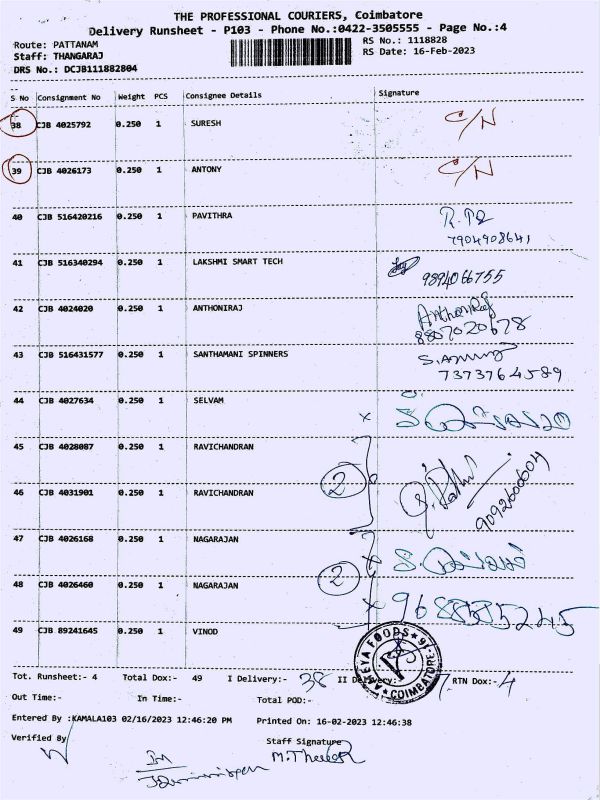 THE PROFESSIONAL COURIERS, Coimbatore
Delivery Runsheet - P103 - Phone No.:0422-3505555 - Page No.:4
Route: PATTANAM
Staff: THANGARAJ
DRS No.: DCJB111882804
RS No.: 1118828
RS Date: 16-Feb-2023
S No Consignment No Weight PCS Consignee Details Signature
38 CJB 4025792 0.250 1 SURESH C/N
39 CJB 4026173 0.250 1 ANTONY C/N
40 CJB 516420216 0.250 1 PAVITHRA
7904908641
41 CJB 516340294 0.250 1 LAKSHMI SMART TECH
9894066755
42 CJB 4024020 0.250 1 ANTHONIRAJ AnthoniRaj
8807020678
43 CJB 516431577 0.250 1 SANTHAMANI SPINNERS
7373764589
44 CJB 4027634 0.250 1 SELVAM
45 CJB 4028087 0.250 1 RAVICHANDRAN
2
46 CJB 4031901 0.250 1 RAVICHANDRAN
47 CJB 4026168 0.250 1 NAGARAJAN
2
48 CJB 4026460 0.250 1 NAGARAJAN
49 CJB 89241645 0.250 1 VINOD
FOODS COIMBATORE-16
Tot. Runsheet:- 4 Total Dox:- 49 I Delivery:- 38 II Delivery:- 7 RTN Dox:- 4
Out Time:- In Time:- Total POD:-
Entered By :KAMALA103 02/16/2023 12:46:20 PM Printed On: 16-02-2023 12:46:38
Verified By
Staff Signature